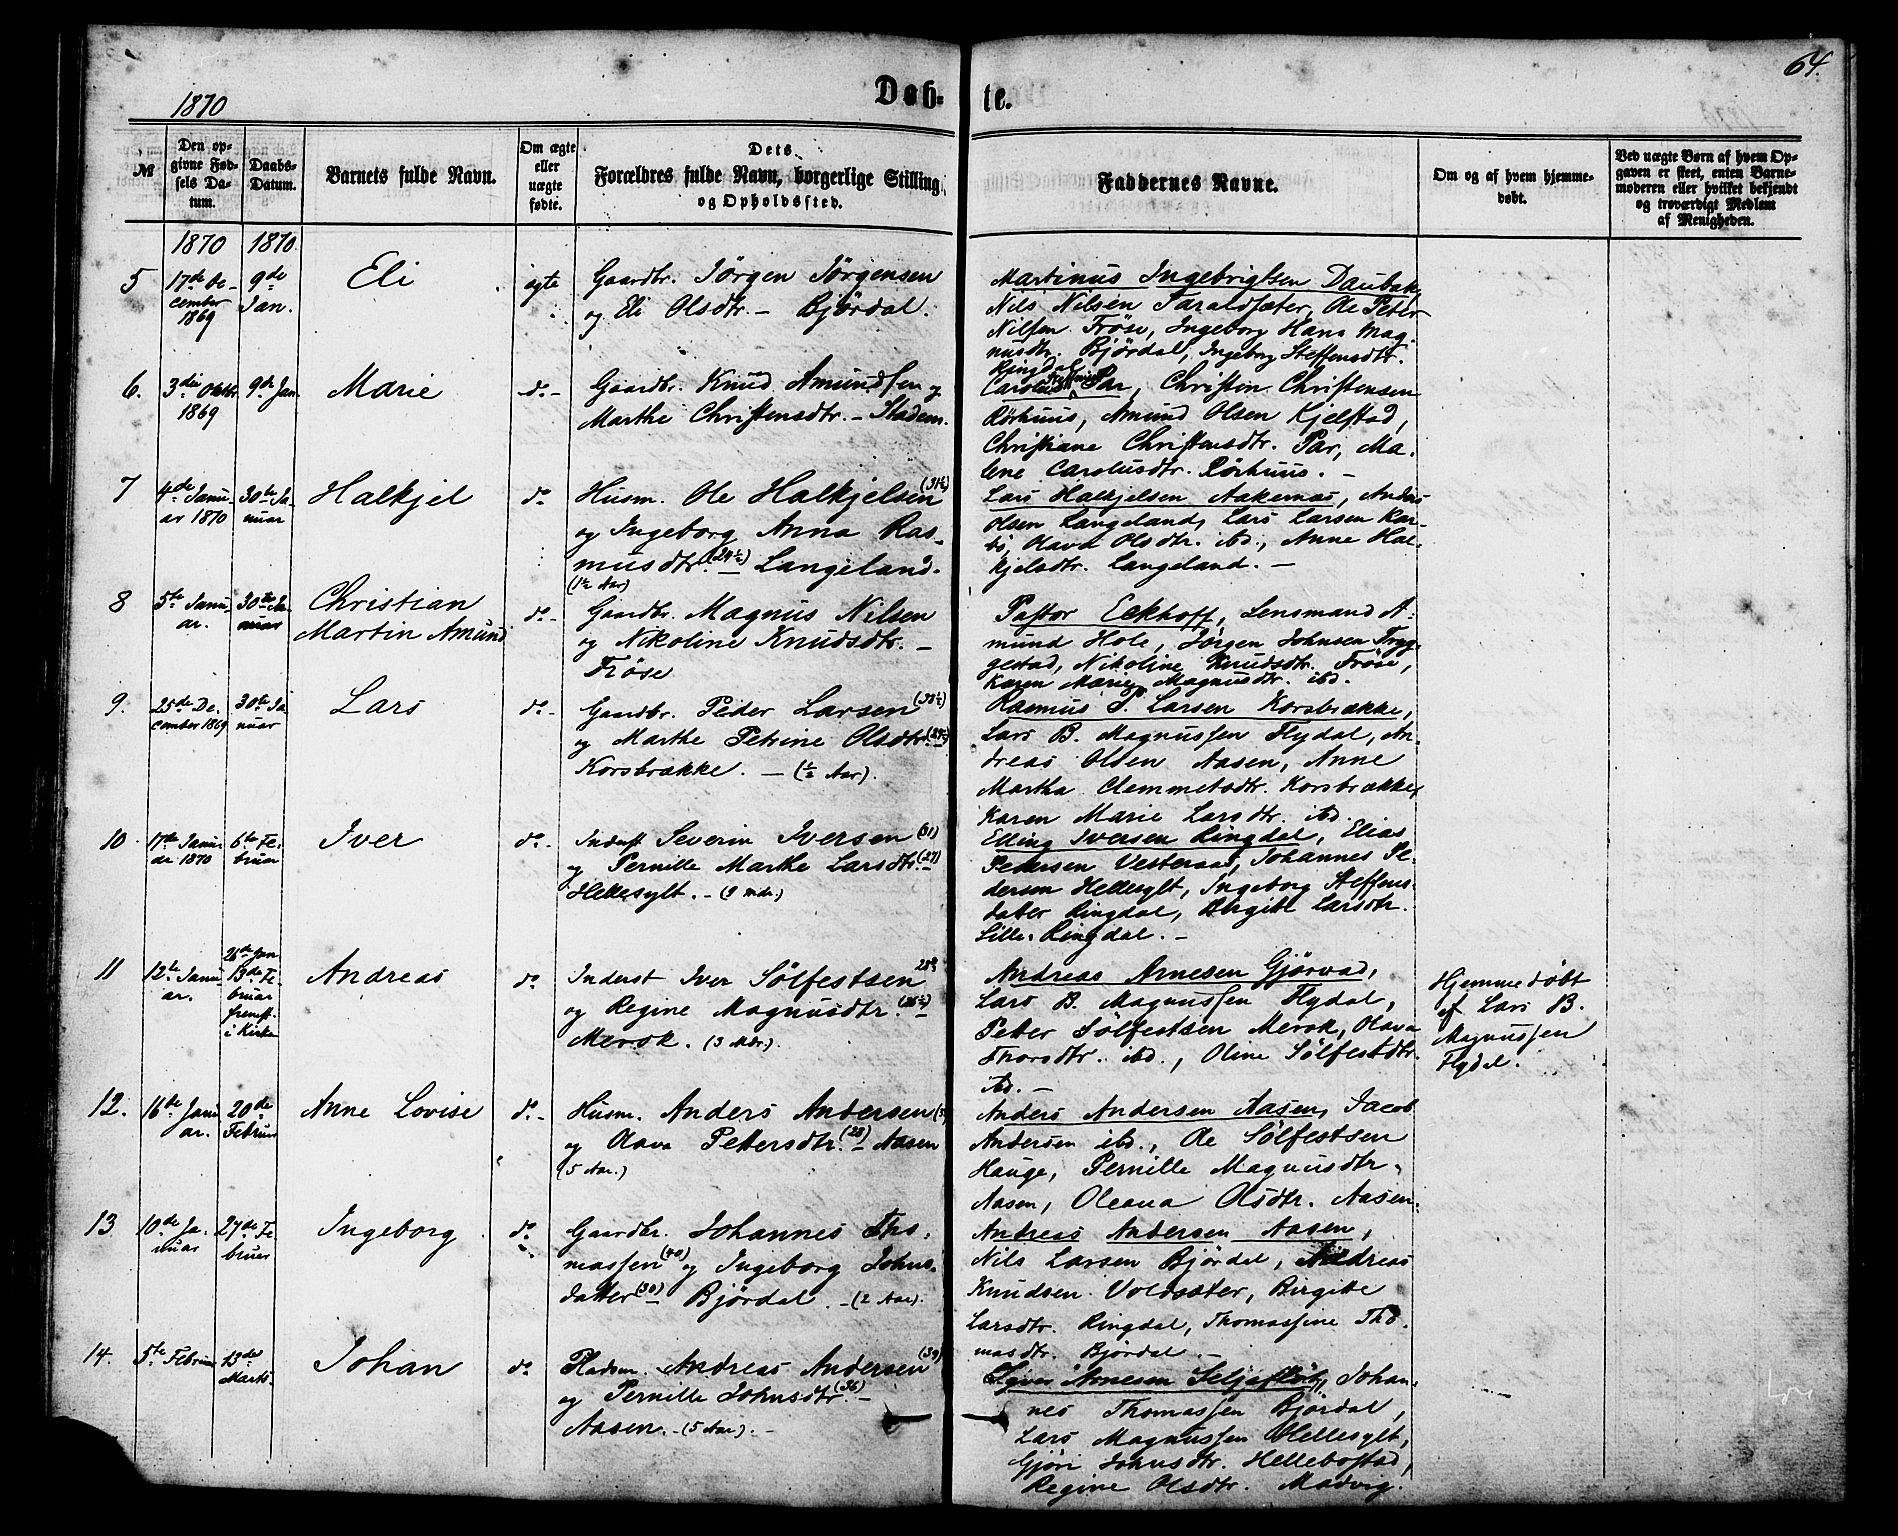 64.
1870
Døb-
te.
№
Den op-
givne Fød-
sels Da-
tum.
Daabs-
Datum.
Barnets fulde Navn.
Om ægte
eller
uægte
fødte.
Dets
Forældres fulde Navn, borgerlige Stilling
og Opholdssted.
Faddernes Navne.
Om og af hvem hjemme-
døbt.
Ved uægte Børn af hvem Op-
gaven er skeet, enten Barne-
moderen eller hvilket bekjendt
og troværdigt Medlem
af Menigheden.
1870 1870.
5
17de De-
cember
1869
9de
Jan.
Eli
ægte
Gaardbr. Jörgen Jörgensen
og Eli Olsdtr. - Björdal.
Martinus Ingebrigtsen Daubak,
Nils Nilsen Taraldsæter, Ole Peter
Nilsen Fröse, Ingeborg Hans Mag-
nusdtr. Björdal, Ingeborg Steffensdtr.
Ringdal
6.
3die Oktbr.
1869
9de Jan.
Marie
do. -
Gaardbr. Knud Amundsen og
Marthe Christensdtr. - Stadem.
Carolus Par, Christen Christensen
Rörhuus, Amund Olsen Kjelstad,
Christiane Christensdtr. Par, Ma-
lene Carolusdtr. Rörhuus. -
7
4de Janu-
ar 1870
30te Ja-
nuar
Halkjel
do.
Husm. Ole Halkjelsen (31½)
og Ingeborg Anna Ras-
musdtr. (24½) - Langeland.
(1½ Aar)
Lars Halkjelsen Aakernæs, Anders
Olsen Langeland, Lars Larsen Kor-
bö, Olava Olsdtr. ibd., Anne Hal-
kjelsdtr. Langeland. -
8
5te Janu-
ar.
30te Ja-
nuar
Christian
Martin Amund
do. -
Gaardbr. Magnus Nilsen
og Nikoline Knudsdtr. -
Fröse
Pastor Eckhoff, Lensmand A-
mund Hole, Jörgen Johnsen Tryg-
gestad, Nikoline Knudsdtr. Fröse,
Karen Marie Magnusdtr. ibd.
9.
25de De-
cember 1869
30te Ja-
nuar
Lars
do. -
Gaardbr. Peder Larsen (38½)
og Marthe Petrine Olsdtr.
Korsbrække. - (½ Aar).
Rasmus P. Larsen Korsbrække,
Lars B. Magnussen Flydal, An-
dreas Olsen Aasen, Anne
Martha Clemmetsdtr. Korsbrække,
Karen Marie Larsdtr. ibd.
10
17de Janu-
ar 1870
6te Fe-
bruar
Iver
do. -
Inderst Severin Iversen (31)
og Pernille Marthe Larsdtr. (27) -
Hellesylt. - (9 Mdr.)
Elling Iversen Ringdal, Elias
Petersen Vesteraas, Johannes Pe-
dersen Hellesylt, Ingeborg Steffens-
datter Ringdal, Birgitte Larsdtr.
Lille-Ringdal. -
11
12te Janu-
ar.
26de Jan
13de Fe-
bruar
fremst.
i Kirke
Andreas
do.
Inderst Iver Sölfestsen
og Regine Magnusdtr. -
Merok. (3 Mdr.)
Andreas Arnesen Gjörvad,
Lars B. Magnussen Flydal,
Petter Sölfestsen Merok, Olava
Thorsdtr. ibd., Oline Sölfestdtr.
ibd. -
Hjemmedöbt
af Lars B.
Magnussen
Flydal.
12.
16de Janu-
ar.
20de
Februar
Anne Lovise
do. -
Husm. Anders Andersen
og Olava Pettersdtr. (28) - Aasen
(5 Aar.)
Anders Andersen Aasen, Jacob
Andersen ibd., Ole Sölfestsen
Hauge, Pernille Magnusdtr.
Aasen, Oleana Olsdtr. Aasen.
13
10de Ja-
nuar
27de Fe-
bruar
Ingeborg
do.
Gaardbr. Johannes Tho-
massen (40) og Ingeborg Johns-
datter (30) - Björdal. - (2 Aar).
Andreas Andersen Aasen,
Nils Larsen Björdal, Andreas
Knudsen Voldsæter, Birgitte
Larsdtr. Ringdal, Thomassine Tho-
masdtr. Björdal. -
14.
5te Februar
13de
Marts.
Johan
do.
Pladsm. Andreas Andersen (39)
og Pernille Johnsdtr. (36) -
Aasen. - (5 Aar). -
Arnesen Seljeflot, Johan-
nes Thomassen Björdal,
Lars Magnussen Hellesylt,
Gjöri Johnsdtr. Hellebostad,
Regine Olsdtr. Madvig.